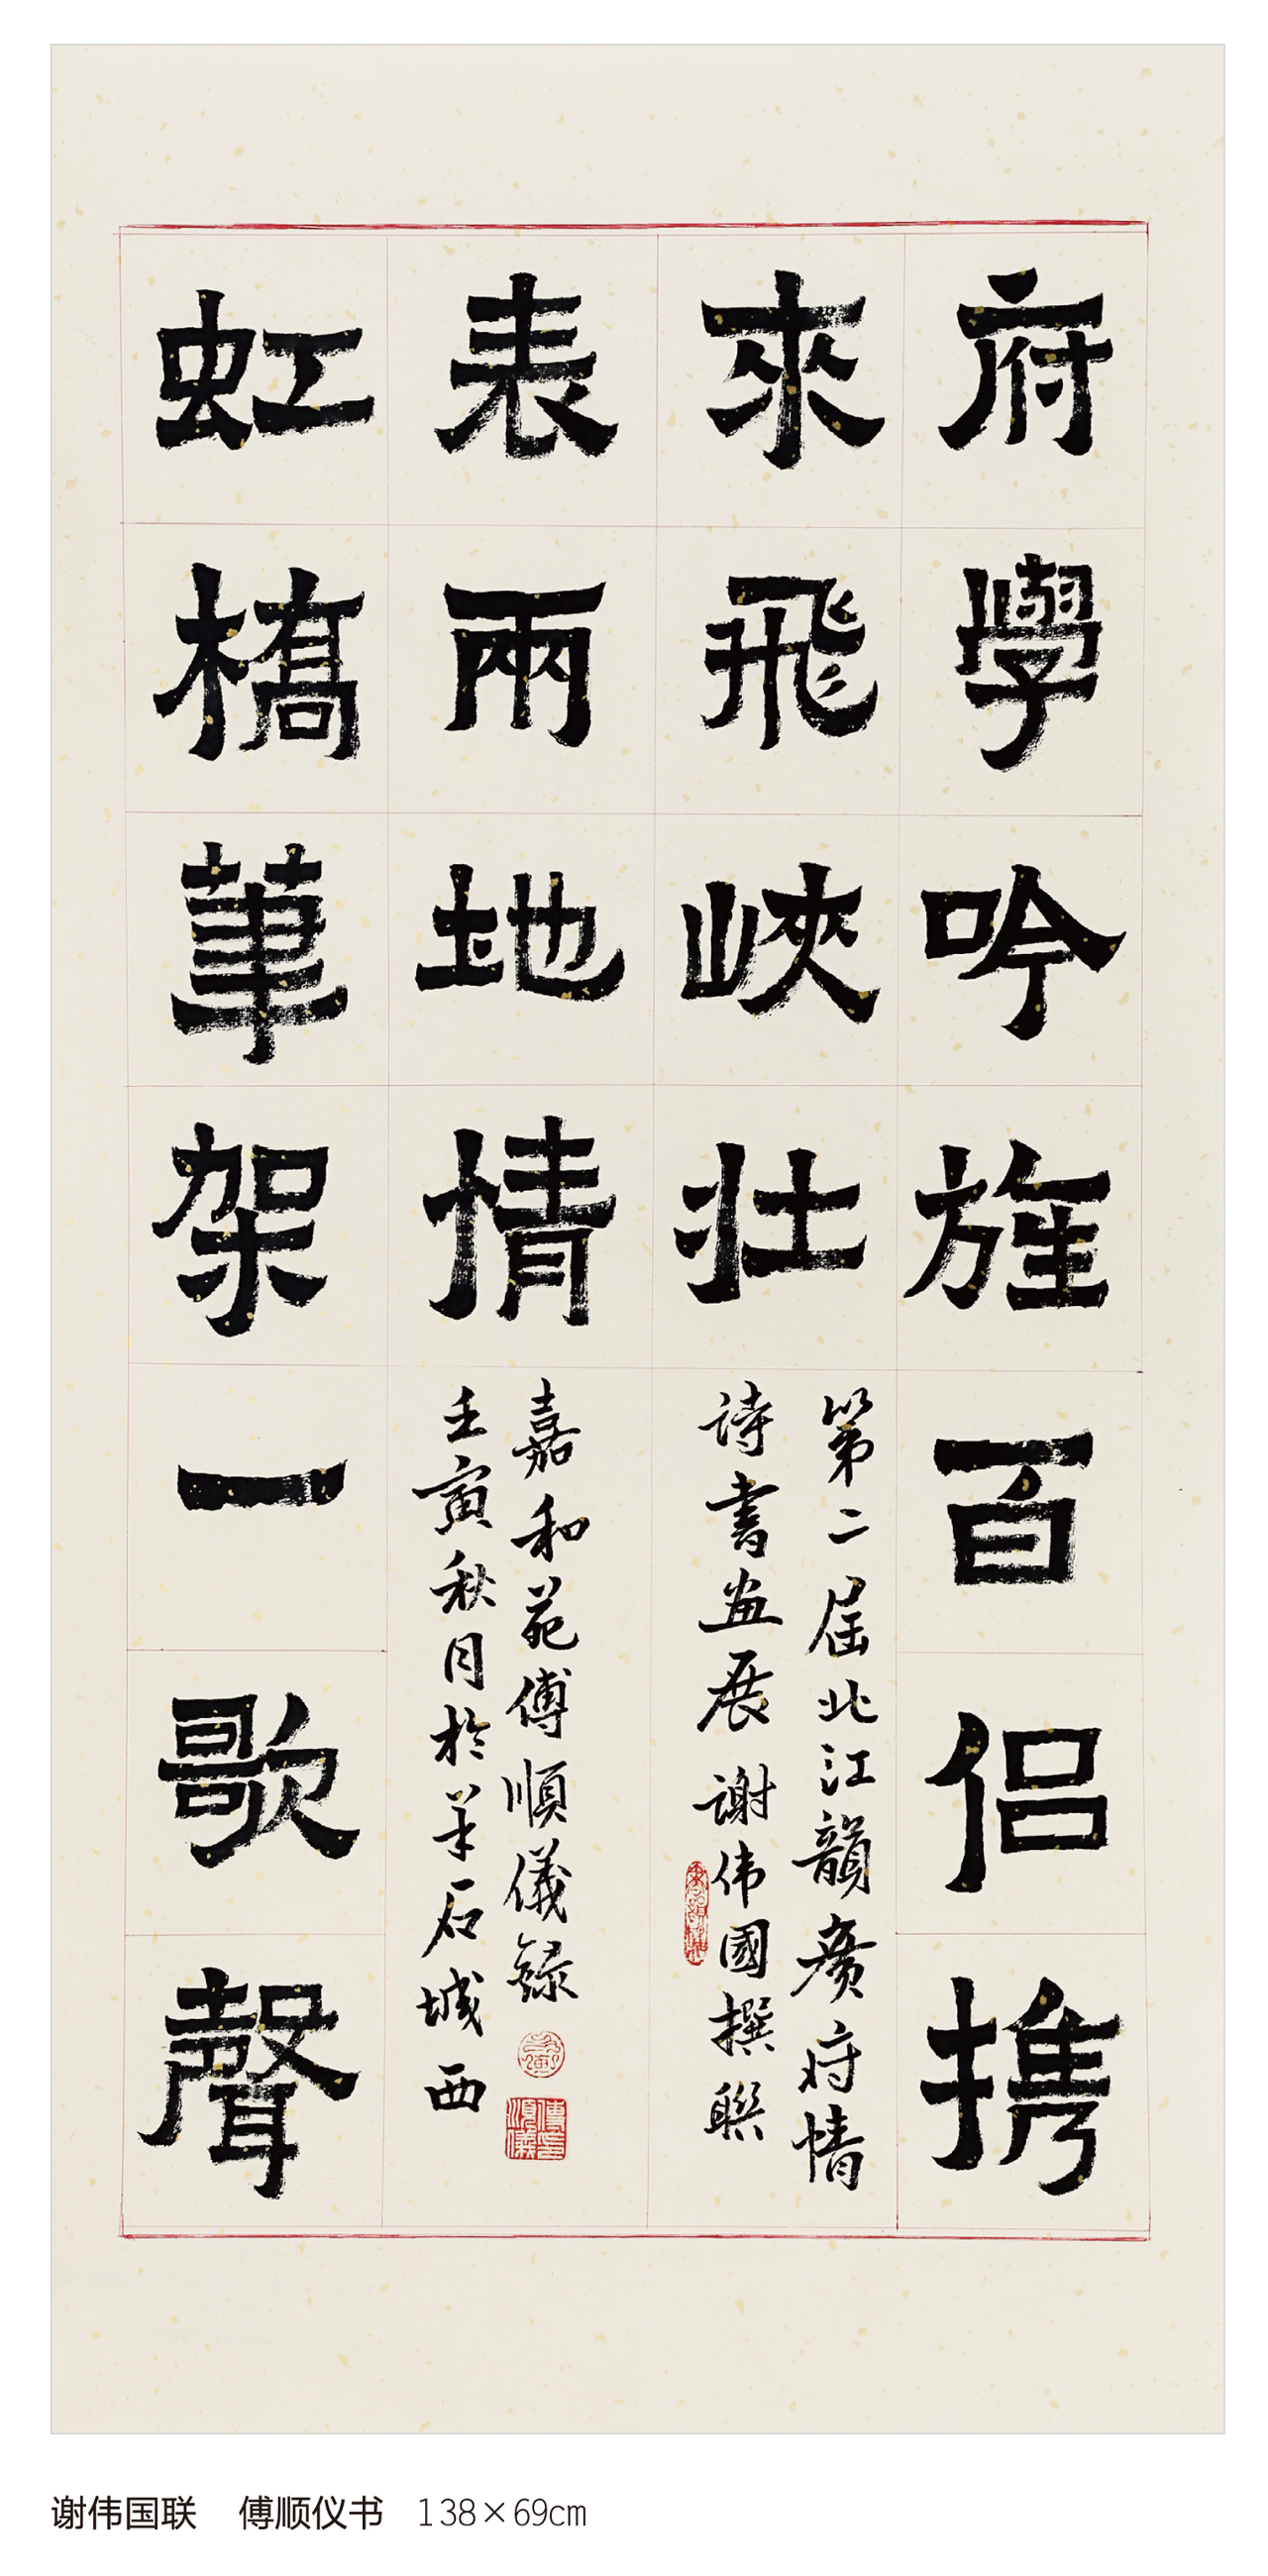 府學吟旌百侣携
來飛峽壮
第二届北江韻廣府情
詩書画展谢伟國撰聯
表兩地情
嘉和苑傅順儀録
壬寅秋月於羊石城西
虹橋筆架一歌聲
傅印順儀
谢伟国联 傅顺仪书 138×69cm